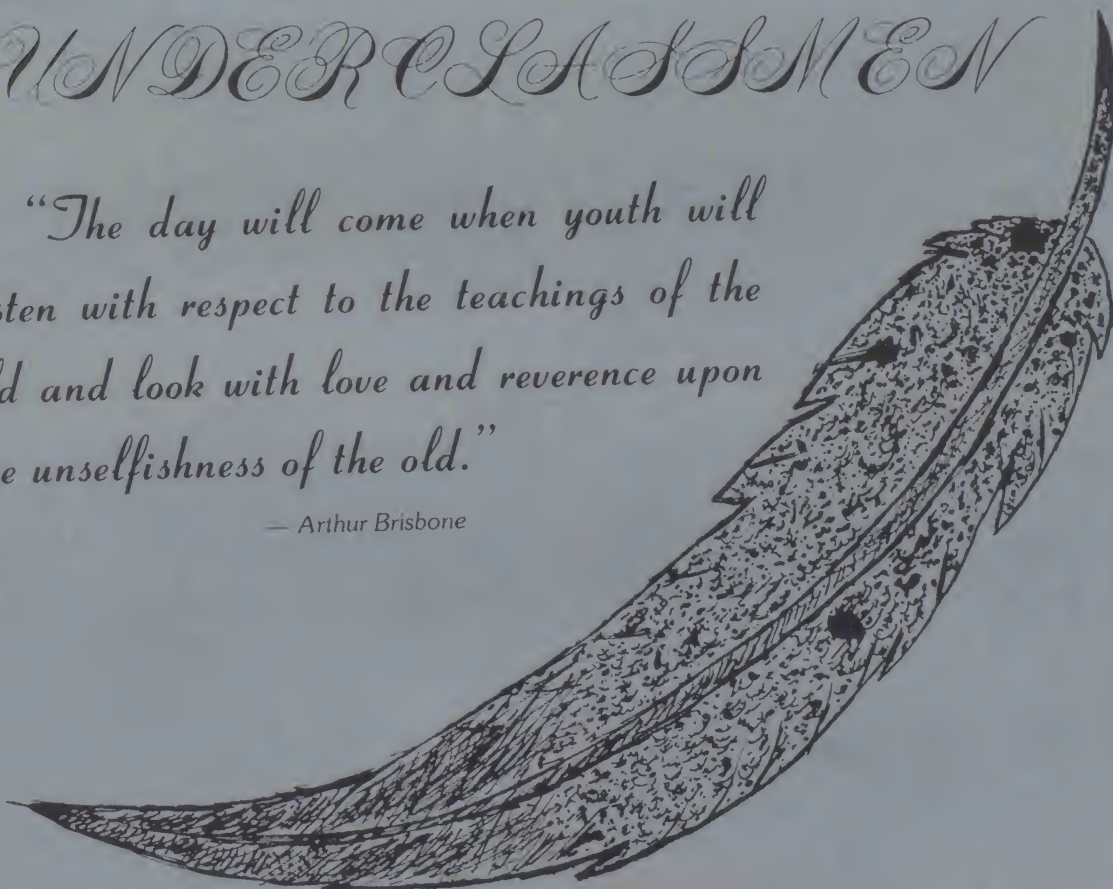 UNDERCLASSMEN
“The day will come when youth will
sten with respect to the teachings of the
d and look with love and reverence upon
e unselfishness of the old.”
— Arthur Brisbone